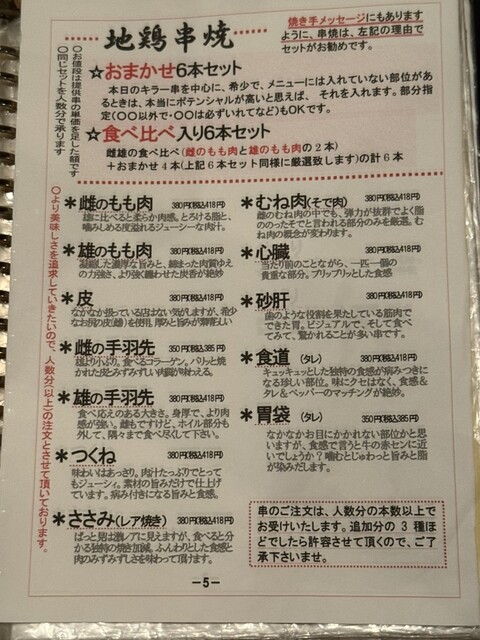 地鶏串焼
焼き手メッセージにもあります
ように、串焼は、左記の理由で
セットがお勧めです。
☆おまかせ6本セット
本日のキラー串を中心に、希少で、メニューには入れていない部位があ
るときは、本当にポテンシャルが高いと思えば、それを入れます。部分指
定(〇〇以外で・〇〇は必ずいれてなど)もOKです。
☆食べ比べ入り6本セット
雌雄の食べ比べ(雌のもも肉と雄のもも肉の2本)
+おまかせ4本(上記6本セット同様に厳選致します)の計6本
〇お値段は提供串の単価を足した額です
〇同じセットを人数分で承ります
〇より美味しさを追求していきたいので、人数分(以上)の注文とさせて頂いております。
＊雌のもも肉 380円(税込418円)
雄に比べると柔らか肉感。とろける脂と、
噛みしめる度溢れるジューシーな肉汁。
＊雄のもも肉 380円(税込418円)
凝縮した濃厚な旨みと、締まった肉質ゆえ
の力強さ、より強く纏わせた炭香が絶妙
＊皮 380円(税込418円)
なかなか扱っている店はない気がしますが、希少
なお尻の皮(雌)を使用。厚みと旨みが素晴らしい
＊雌の手羽先 350円(税込385円)
雄より小ぶり。食べるコラーゲン。パリッと焼
かれた皮とみずみずしい肉質が味わえる。
＊雄の手羽先 380円(税込418円)
食べ応えのある大きさ。身厚で、より肉
感が強い。雌もですけど、ホイル部分も
外して、隅々まで食べ尽くして下さい。
＊つくね 380円(税込418円)
味わいはあっさり。肉汁たっぷりでとって
もジューシィ。素材の旨みだけで仕上げ
ています。病み付きになる旨みと食感。
＊ささみ(レア焼き) 380円(税込418円)
ぱっと見は激レアに見えますが、食べると分
かる独特の焼き加減。ふんわりとした食感と
肉のみずみずしさを味わって頂けます。
＊むね肉(そで肉) 380円(税込418円)
雌のむね肉の中でも、弾力が抜群でよく脂
ののったそでと言われる部分のみを厳選。む
ね肉の概念が変わります。
＊心臓 380円(税込418円)
当たり前のことながら、一匹一個の
貴重な部分。プリップリッとした食感
＊砂肝 380円(税込418円)
歯のような役割を果たしている筋肉で
できた胃。ビジュアルで、そして食べ
てみて、驚かれることが多い串です。
＊食道(タレ) 380円(税込418円)
キュッキュッとした独特の食感が病みつきに
なる珍しい部位。味にクセはなく、食感&
タレ&ペッパーのマッチングが絶妙。
＊胃袋(タレ) 350円(税込385円)
なかなかお目にかかれない部位かと思
いますが、食感で言うと牛の赤センに近
いでしょうか?噛むとじゅわっと旨みと脂
が染みだします。
串のご注文は、人数分の本数以上で
お受けいたします。追加分の3種ほ
どでしたら許容させて頂くので、ご了
承下さいませ。
－5－